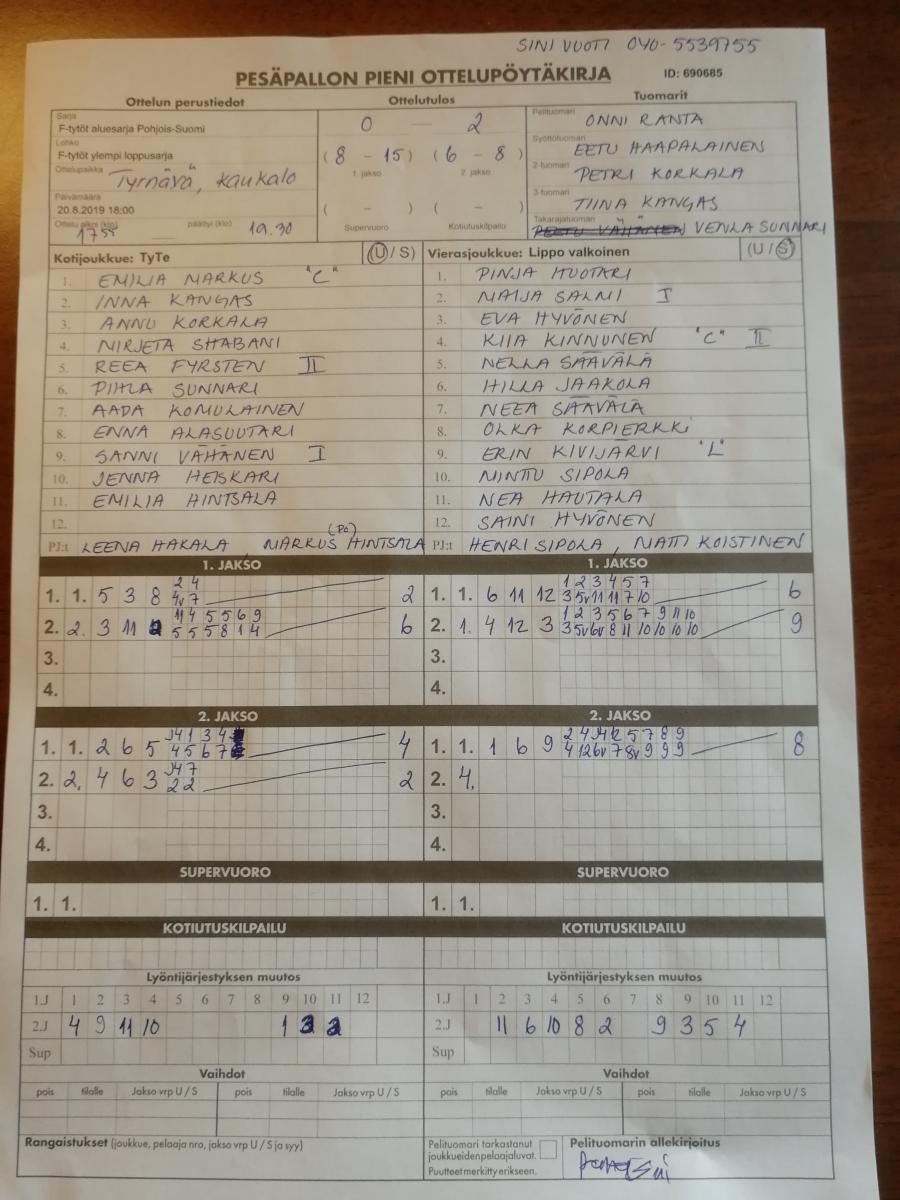 SINI VUOTI 040-5539755
PESÄPALLON PIENI OTTELUPÖYTÄKIRJA ID: 690685
Ottelun perustiedot Ottelutulos Tuomarit
Sarja
F-tytöt aluesarja Pohjois-Suomi
Lohko
F-tytöt ylempi loppusarja
Ottelupaikka Tyrnävä, kaukalo
Päivämäärä
20.8.2019 18:00
Ottelu alkoi (klo) 17 55 päättyi (klo) 19.30
0 — 2
(8 - 15) (6 - 8)
1. jakso 2. jakso
( - ) ( - )
Supervuoro Kotiutuskilpailu
Pelituomari ONNI RANTA
Syöttötuomari EETU HAAPALAINEN
2-tuomari PETRI KORKALA
3-tuomari TIINA KANGAS
Takarajatuomari VENLA SUNNARI
Kotijoukkue: TyTe (U / S)
1. EMILIA MARKUS "C"
2. INNA KANGAS
3. ANNU KORKALA
4. NIRJETA SHABANI
5. REEA FYRSTEN II
6. PIHLA SUNNARI
7. AADA KOMULAINEN
8. ENNA ALASUUTARI
9. SANNI VÄHÄNEN I
10. JENNA HEISKARI
11. EMILIA HINTSALA
12.
PJ:t LEENA HAKALA, MARKUS HINTSALA (PO)
Vierasjoukkue: Lippo valkoinen (U / S)
1. PINJA HUOTARI
2. MAIJA SALMI I
3. EVA HYVÖNEN
4. KIIA KINNUNEN "C" II
5. NELLA SÄÄVÄLÄ
6. HILLA JAAKOLA
7. NEEA SÄÄVÄLÄ
8. OLKA KORPIERKKI
9. ERIN KIVIJÄRVI "L"
10. MINTTU SIPOLA
11. NEA HAUTALA
12. SAINI HYVÖNEN
PJ:t HENRI SIPOLA, MATTI KOISTINEN
1. JAKSO 1. JAKSO
2 4
1. 1. 5 3 8 4v 7 2
11 4 5 5 6 9
2. 2. 3 11 2 5 5 5 8 1 4 6
3.
4.
1 2 3 4 5 7
1. 1. 6 11 12 3 5v 11 11 7 10 6
1 2 3 5 6 7 9 11 10
2. 1. 4 12 3 3 5v 6v 8 11 10 10 10 10 9
3.
4.
2. JAKSO 2. JAKSO
J4 1 3 4
1. 1. 2 6 5 4 5 6 7 4
J4 7
2. 2. 4 6 3 2 2 2
3.
4.
2 4 J4 12 5 7 8 9
1. 1. 1 6 9 4 12 6v 7 8v 9 9 9 8
2. 4.
3.
4.
SUPERVUORO SUPERVUORO
1. 1. 1. 1.
KOTIUTUSKILPAILU KOTIUTUSKILPAILU
Lyöntijärjestyksen muutos Lyöntijärjestyksen muutos
1.J 1 2 3 4 5 6 7 8 9 10 11 12 1.J 1 2 3 4 5 6 7 8 9 10 11 12
2.J 4 9 11 10 1 3 2 2.J 11 6 10 8 2 9 3 5 4
Sup Sup
Vaihdot Vaihdot
pois tilalle Jakso vrp U / S pois tilalle Jakso vrp U / S pois tilalle Jakso vrp U / S pois tilalle Jakso vrp U / S
Rangaistukset (joukkue, pelaaja nro, jakso vrp U / S ja syy)
Pelituomari tarkastanut
joukkueiden pelaajaluvat.
Puutteet merkitty erikseen.
Pelituomarin allekirjoitus